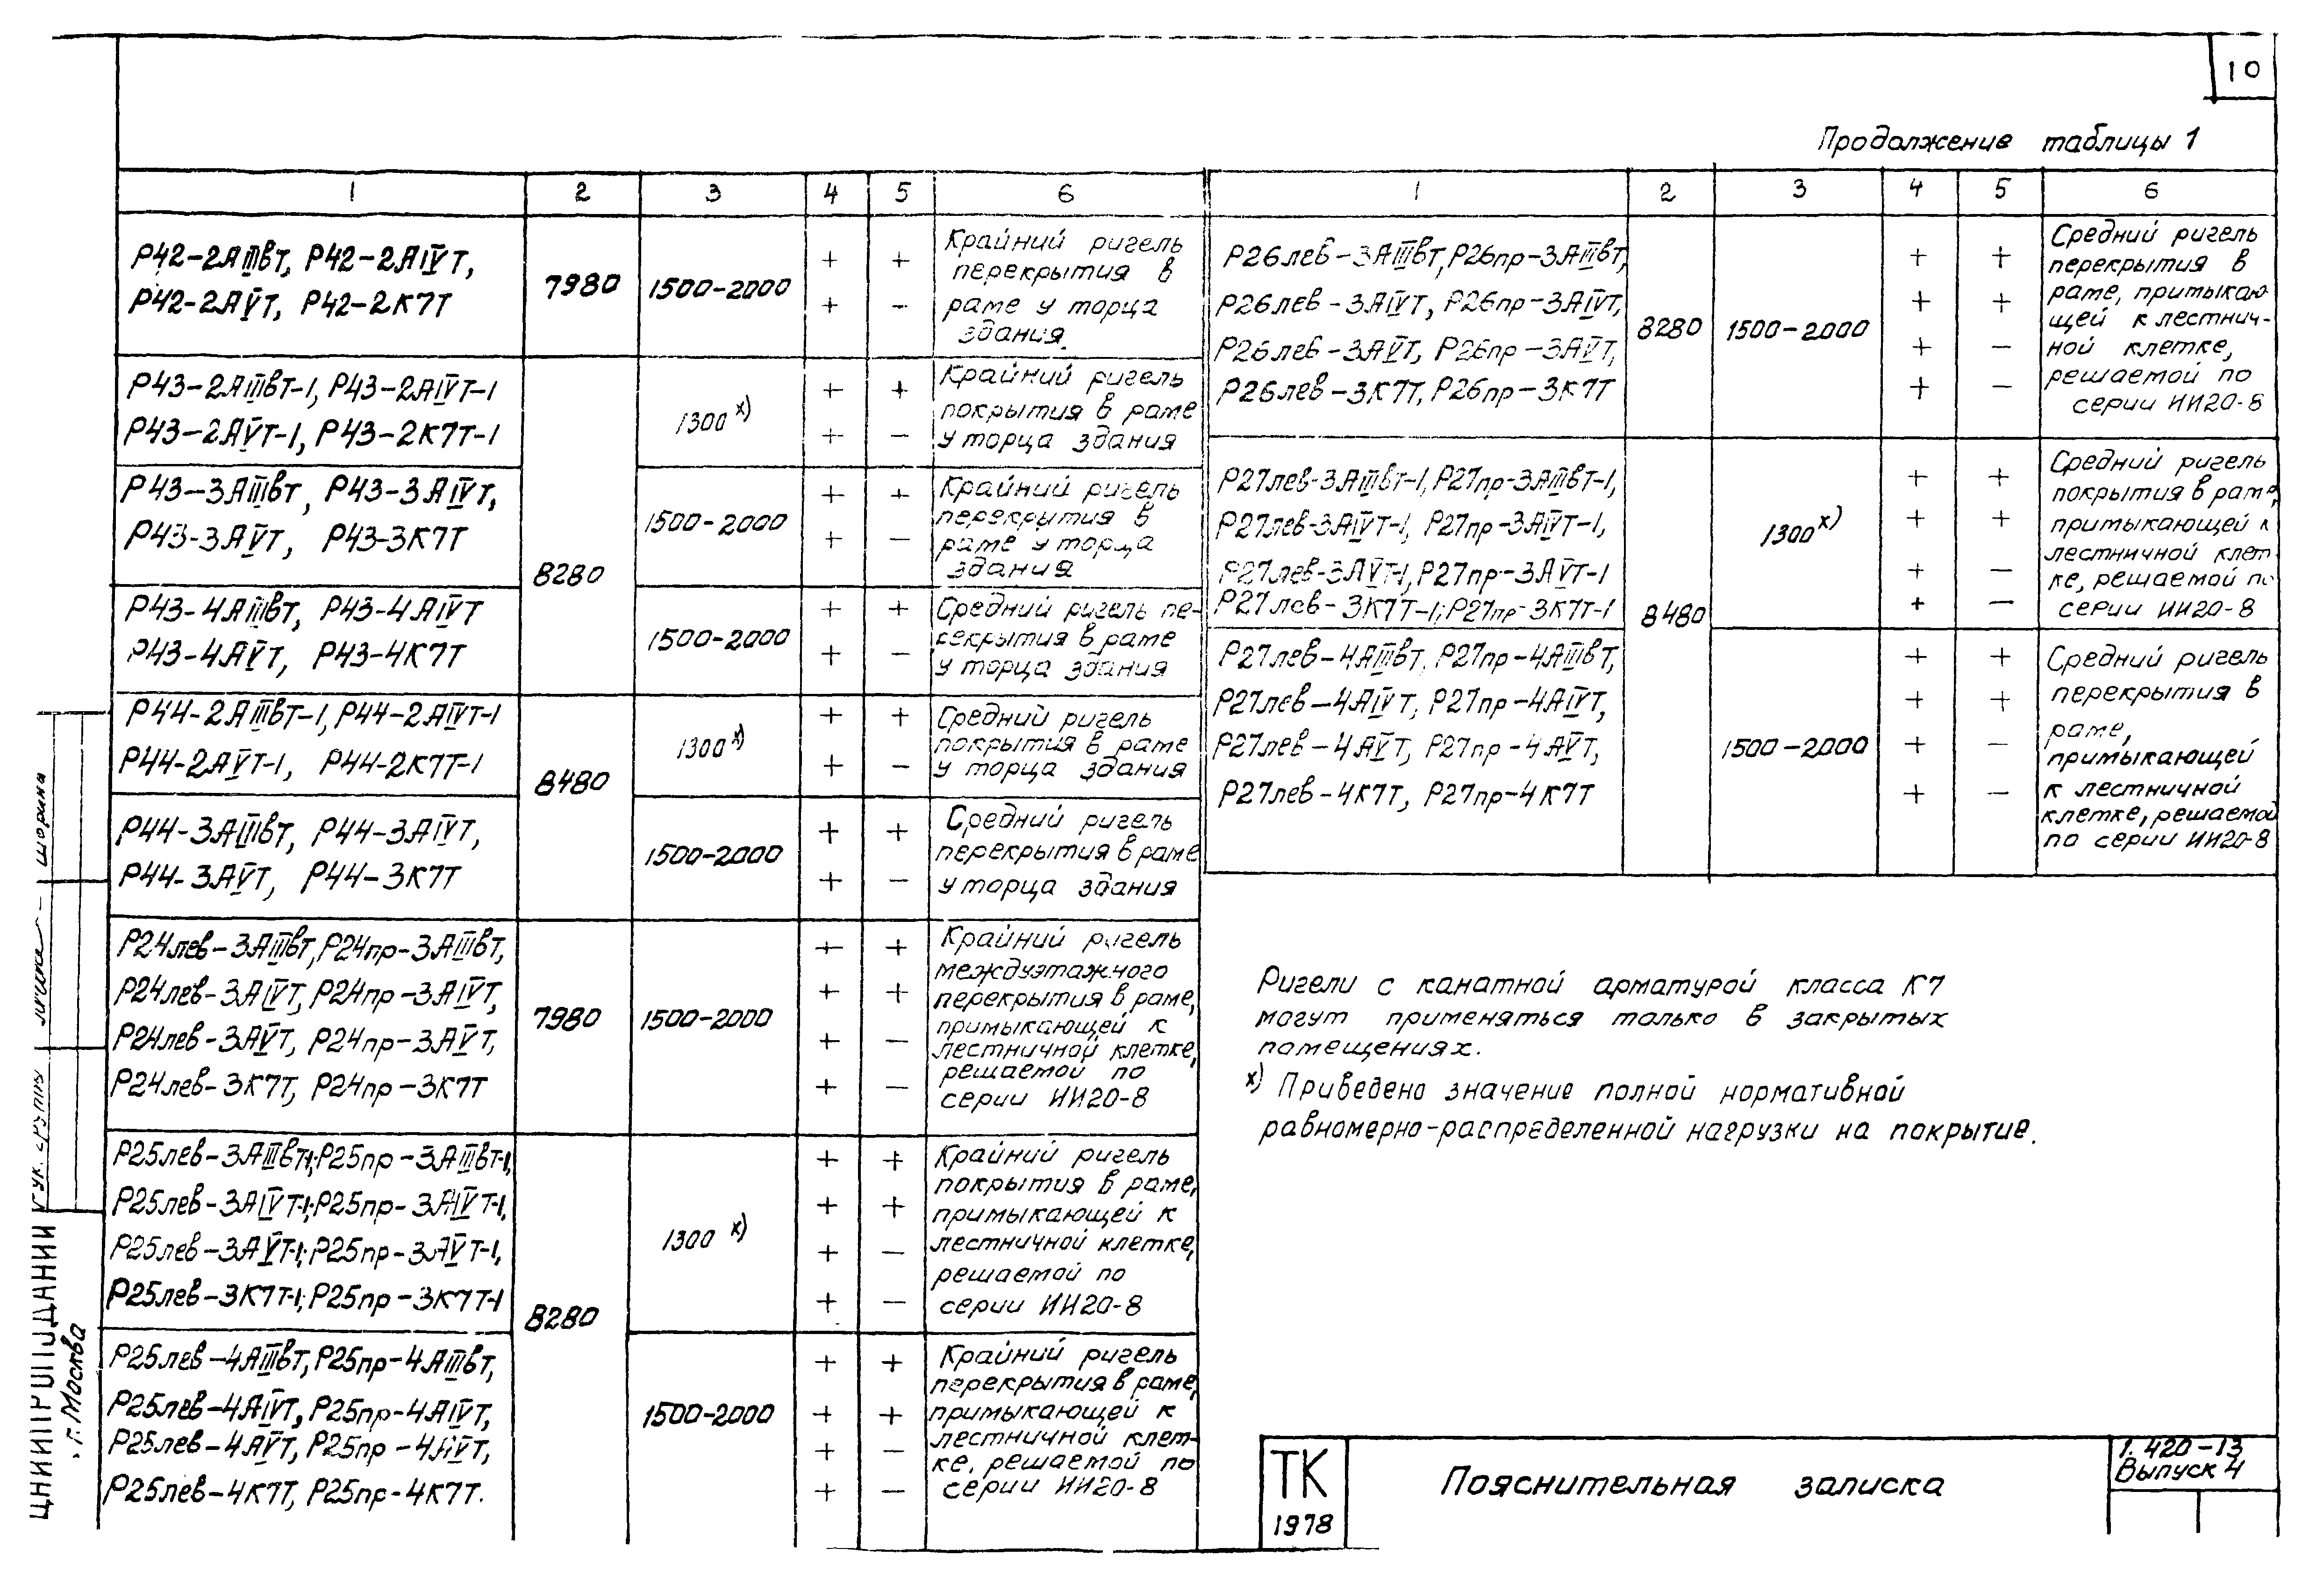 10
Продолжение таблицы 1
1 2 3 4 5 6
Р42-2АIIIвТ, Р42-2АIVТ,
Р42-2АVТ, Р42-2К7Т
7980
1500-2000
+ +
+ −
Крайний ригель
перекрытия в
раме у торца
здания.
Р43-2АIIIвТ-1, Р43-2АIVТ-1
Р43-2АVТ-1, Р43-2К7Т-1
8280
1300 х)
+ +
+ −
Крайний ригель
покрытия в раме
у торца здания
Р43-3АIIIвТ, Р43-3АIVТ,
Р43-3АVТ, Р43-3К7Т
1500-2000
+ +
+ −
Крайний ригель
перекрытия в
раме у торца
здания
Р43-4АIIIвТ, Р43-4АIVТ
Р43-4АVТ, Р43-4К7Т
1500-2000
+ +
+ −
Средний ригель пе-
рекрытия в раме
у торца здания
Р44-2АIIIвТ-1, Р44-2АIVТ-1
Р44-2АVТ-1, Р44-2К7Т-1
8480
1300 х)
+ +
+ −
Средний ригель
покрытия в раме
у торца здания
Р44-3АIIIвТ, Р44-3АIVТ,
Р44-3АVТ, Р44-3К7Т
1500-2000
+ +
+ −
Средний ригель
перекрытия в раме
у торца здания
Р24лев-3АIIIвТ, Р24пр-3АIIIвТ,
Р24лев-3АIVТ, Р24пр-3АIVТ,
Р24лев-3АVТ, Р24пр-3АVТ,
Р24лев-3К7Т, Р24пр-3К7Т
7980
1500-2000
+ +
+ +
+ −
+ −
Крайний ригель
междуэтажного
перекрытия в раме,
примыкающей к
лестничной клетке,
решаемой по
серии ИИ20-8
Р25лев-3АIIIвТ-1; Р25пр-3АIIIвТ-1,
Р25лев-3АIVТ-1; Р25пр-3АIVТ-1,
Р25лев-3АVТ-1; Р25пр-3АVТ-1,
Р25лев-3К7Т-1; Р25пр-3К7Т-1
8280
1300 х)
+ +
+ +
+ −
+ −
Крайний ригель
покрытия в раме,
примыкающей к
лестничной клетке,
решаемой по
серии ИИ20-8
Р25лев-4АIIIвТ, Р25пр-4АIIIвТ,
Р25лев-4АIVТ, Р25пр-4АIVТ,
Р25лев-4АVТ, Р25пр-4АVТ,
Р25лев-4К7Т, Р25пр-4К7Т.
1500-2000
+ +
+ +
+ −
+ −
Крайний ригель
перекрытия в раме,
примыкающей к
лестничной клет-
ке, решаемой по
серии ИИ20-8
1 2 3 4 5 6
Р26лев-3АIIIвТ, Р26пр-3АIIIвТ,
Р26лев-3АIVТ, Р26пр-3АIVТ,
Р26лев-3АVТ, Р26пр-3АVТ,
Р26лев-3К7Т, Р26пр-3К7Т
8280
1500-2000
+ +
+ +
+ −
+ −
Средний ригель
перекрытия в
раме, примыкаю-
щей к лестнич-
ной клетке,
решаемой по
серии ИИ20-8
Р27лев-3АIIIвТ-1, Р27пр-3АIIIвТ-1,
Р27лев-3АIVТ-1, Р27пр-3АIVТ-1,
Р27лев-3АVТ-1, Р27пр-3АVТ-1
Р27лев-3К7Т-1; Р27пр-3К7Т-1
8480
1300 х)
+ +
+ +
+ −
+ −
Средний ригель
покрытия в раме,
примыкающей к
лестничной клет-
ке, решаемой по
серии ИИ20-8
Р27лев-4АIIIвТ, Р27пр-4АIIIвТ,
Р27лев-4АIVТ, Р27пр-4АIVТ,
Р27лев-4АVТ, Р27пр-4АVТ,
Р27лев-4К7Т, Р27пр-4К7Т
1500-2000
+ +
+ +
+ −
+ −
Средний ригель
перекрытия в
раме,
примыкающей
к лестничной
клетке, решаемой
по серии ИИ20-8
Ригели с канатной арматурой класса К7
могут применяться только в закрытых
помещениях.
х) Приведено значение полной нормативной
равномерно-распределенной нагрузки на покрытие.
ТК
1978
Пояснительная записка
1.420-13
Выпуск 4
г. Москва
рук. группы
Шорина